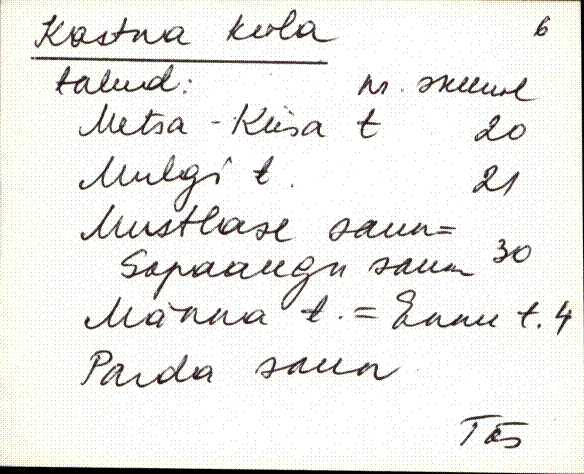 Kastna küla 6
talud: nr.
Metsa-Kiisa t 20
Mulgi t. 21
Mustlase saun=
Sopaaugu saun 30
Männa t. = Ennu t. 4
Parda saun
Tõs